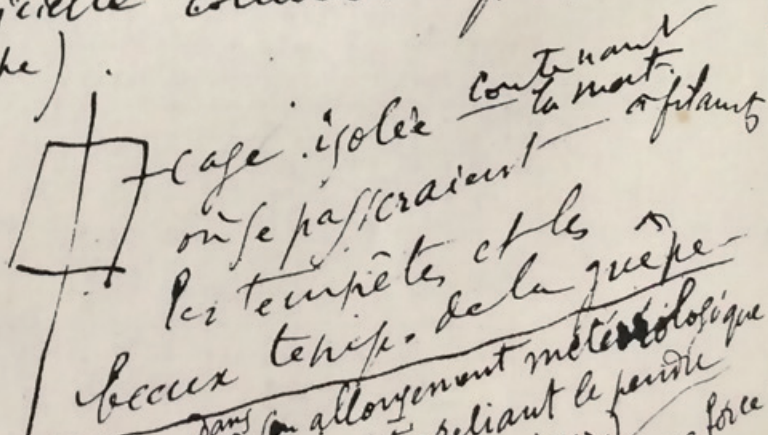 cage isolée contenant
la mat.
où se passeraient
les tempêtes et les
beaux temps de la guêpe
dans son allongement météorologique
reliant le pendu
force